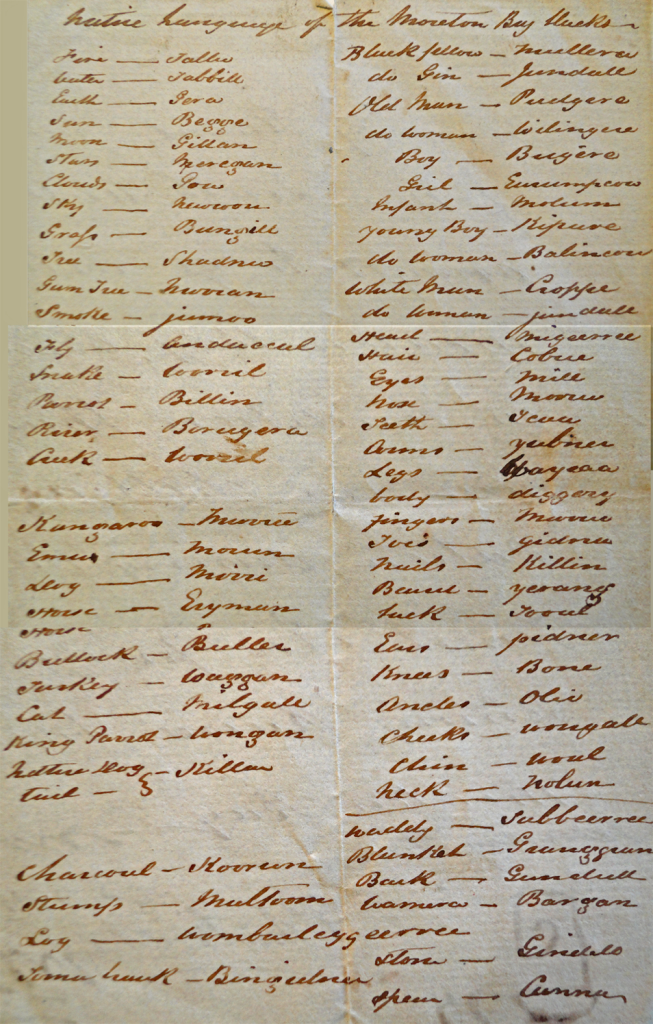 Native Language of the Moreton Bay Blacks
Fire — Jallo
Water — Tabbill
Earth — Gera
Sun — Begge
Moon — Gillan
Stars — Meregan
Clouds —
Sky —
Grass — Bungill
Tree — Shadnu
Gum Tree — Mooran
Smoke — jumoo
Fly —
Snake — Wooril
Parrot — Billin
River — Borugera
Creek — Wooril
Kangaroo — Murrie
Emu — Mourn
Dog — Mirri
Horse — Eryman
Horse
Bullock — Buller
Turkey — Waggan
Cat — Milgate
King Parrot — Wongan
Native Dog — Killar
tail —
Charcoal — Koorun
Stump — Multoom
Log — Wombarleyggeerree
Tomahawk —
Black fellow — Mullera
do Gin — Jundall
Old Man — Pudgere
do woman — Wilingere
Boy — Bugere
Girl — Eurumpcow
Infant — Molum
young Boy — Kipure
do woman — Balincow
White Man — Croppe
do woman — jundall
Head — Migeerree
Hair — Cobue
Eyes — Mill
Nose — Mooru
Teeth —
Arms — yubner
Legs — aycaa
body — diggery
fingers — Murru
Toes — gidna
Nails — Killin
Beard — yerang
back —
Ears — pidner
Knees — Bone
Ancles — Olio
Cheeks — Wongall
Chin — Woul
Neck — Nolun
Waddy — Jabbeerree
Blanket — Geanggran
Bark — Gundull
Wamera — Bargan
Stone —
Spear — Cunna